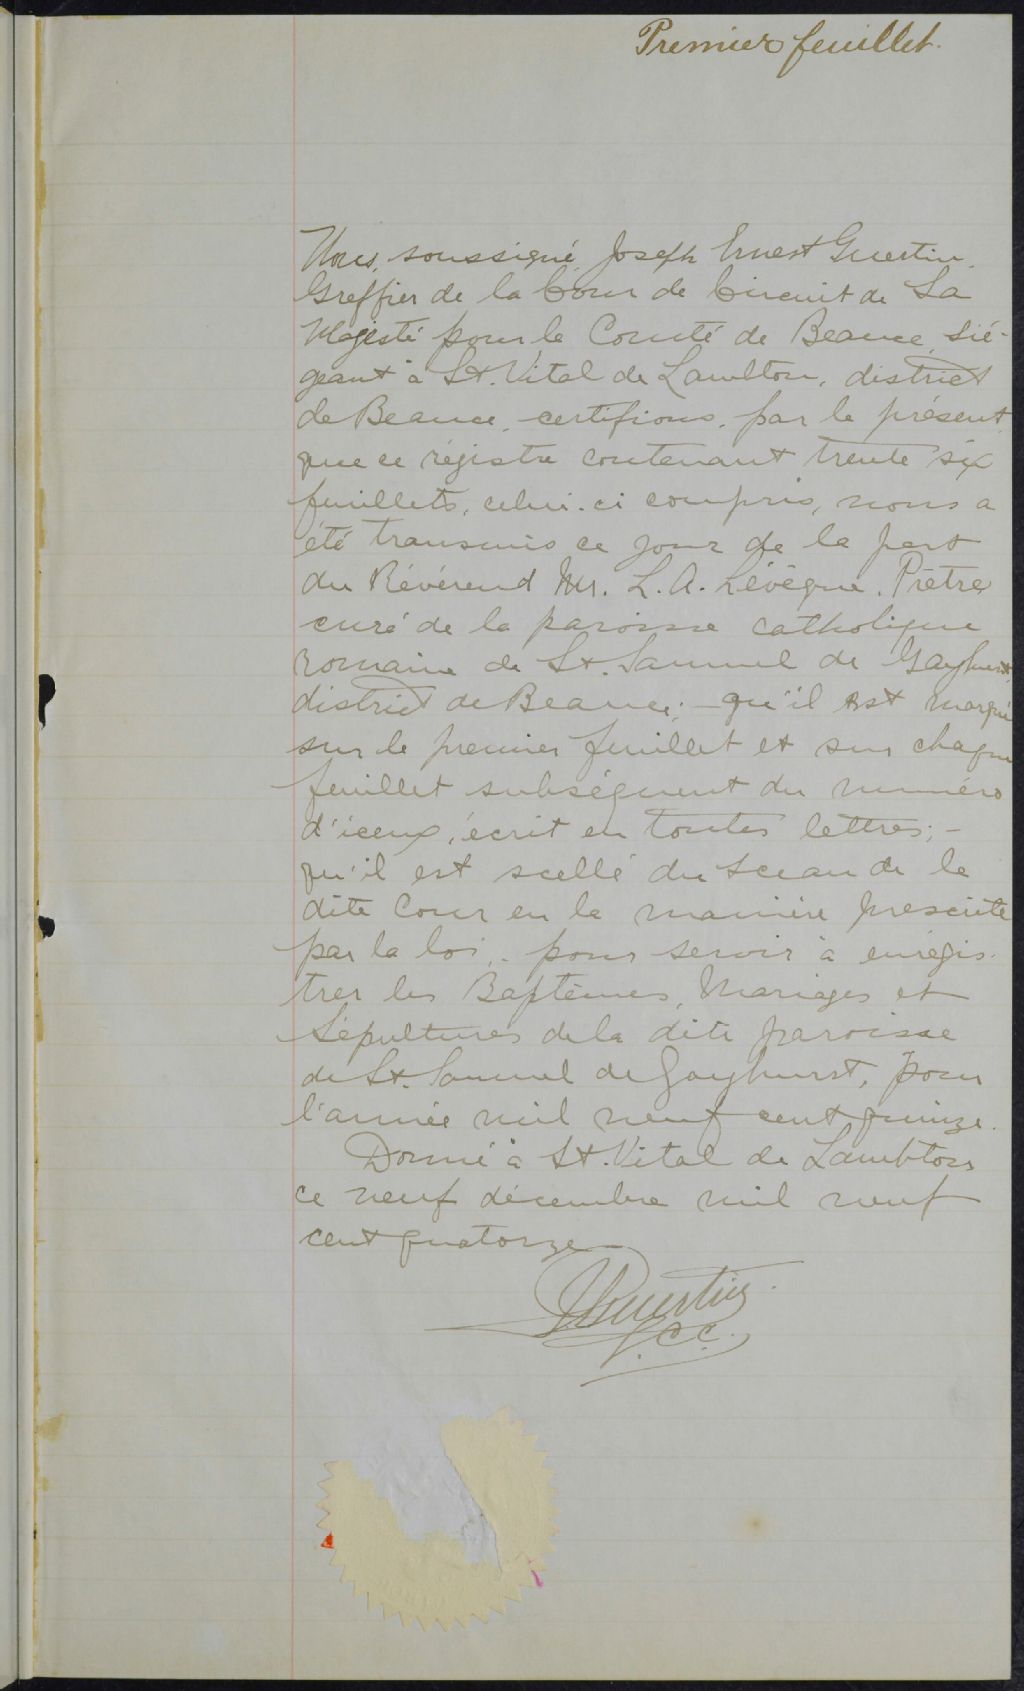 Premier feuillet.
Nous, soussigné, Joseph Ernest Guertin,
Greffier de la Cour de Circuit de Sa
Majesté pour le Comté de Beauce, sié-
geant à St. Vital de Lambton, district
de Beauce, certifions, par le présent,
que ce régistre contenant trente six
feuillets, celui-ci compris, nous a
été transmis ce jour de la part
du Révérend Mr. L. A. Lévêque, Prêtre
curé de la paroisse catholique
romaine de St. Samuel de Gayhurst,
district de Beauce; - qu'il est marqué
sur le premier feuillet et sur chaque
feuillet subséquent du numéro
d'iceux, écrit en toutes lettres; -
qu'il est scellé du sceau de la
dite Cour en la manière prescrite
par la loi, - pour servir à enrégis-
trer les Baptêmes, Mariages et
Sépultures de la dite paroisse
de St. Samuel de Gayhurst, pour
l'année mil neuf cent quinze.
Donné à St. Vital de Lambton
ce neuf décembre mil neuf
cent quatorze
JEGuertin.
G.C.C.